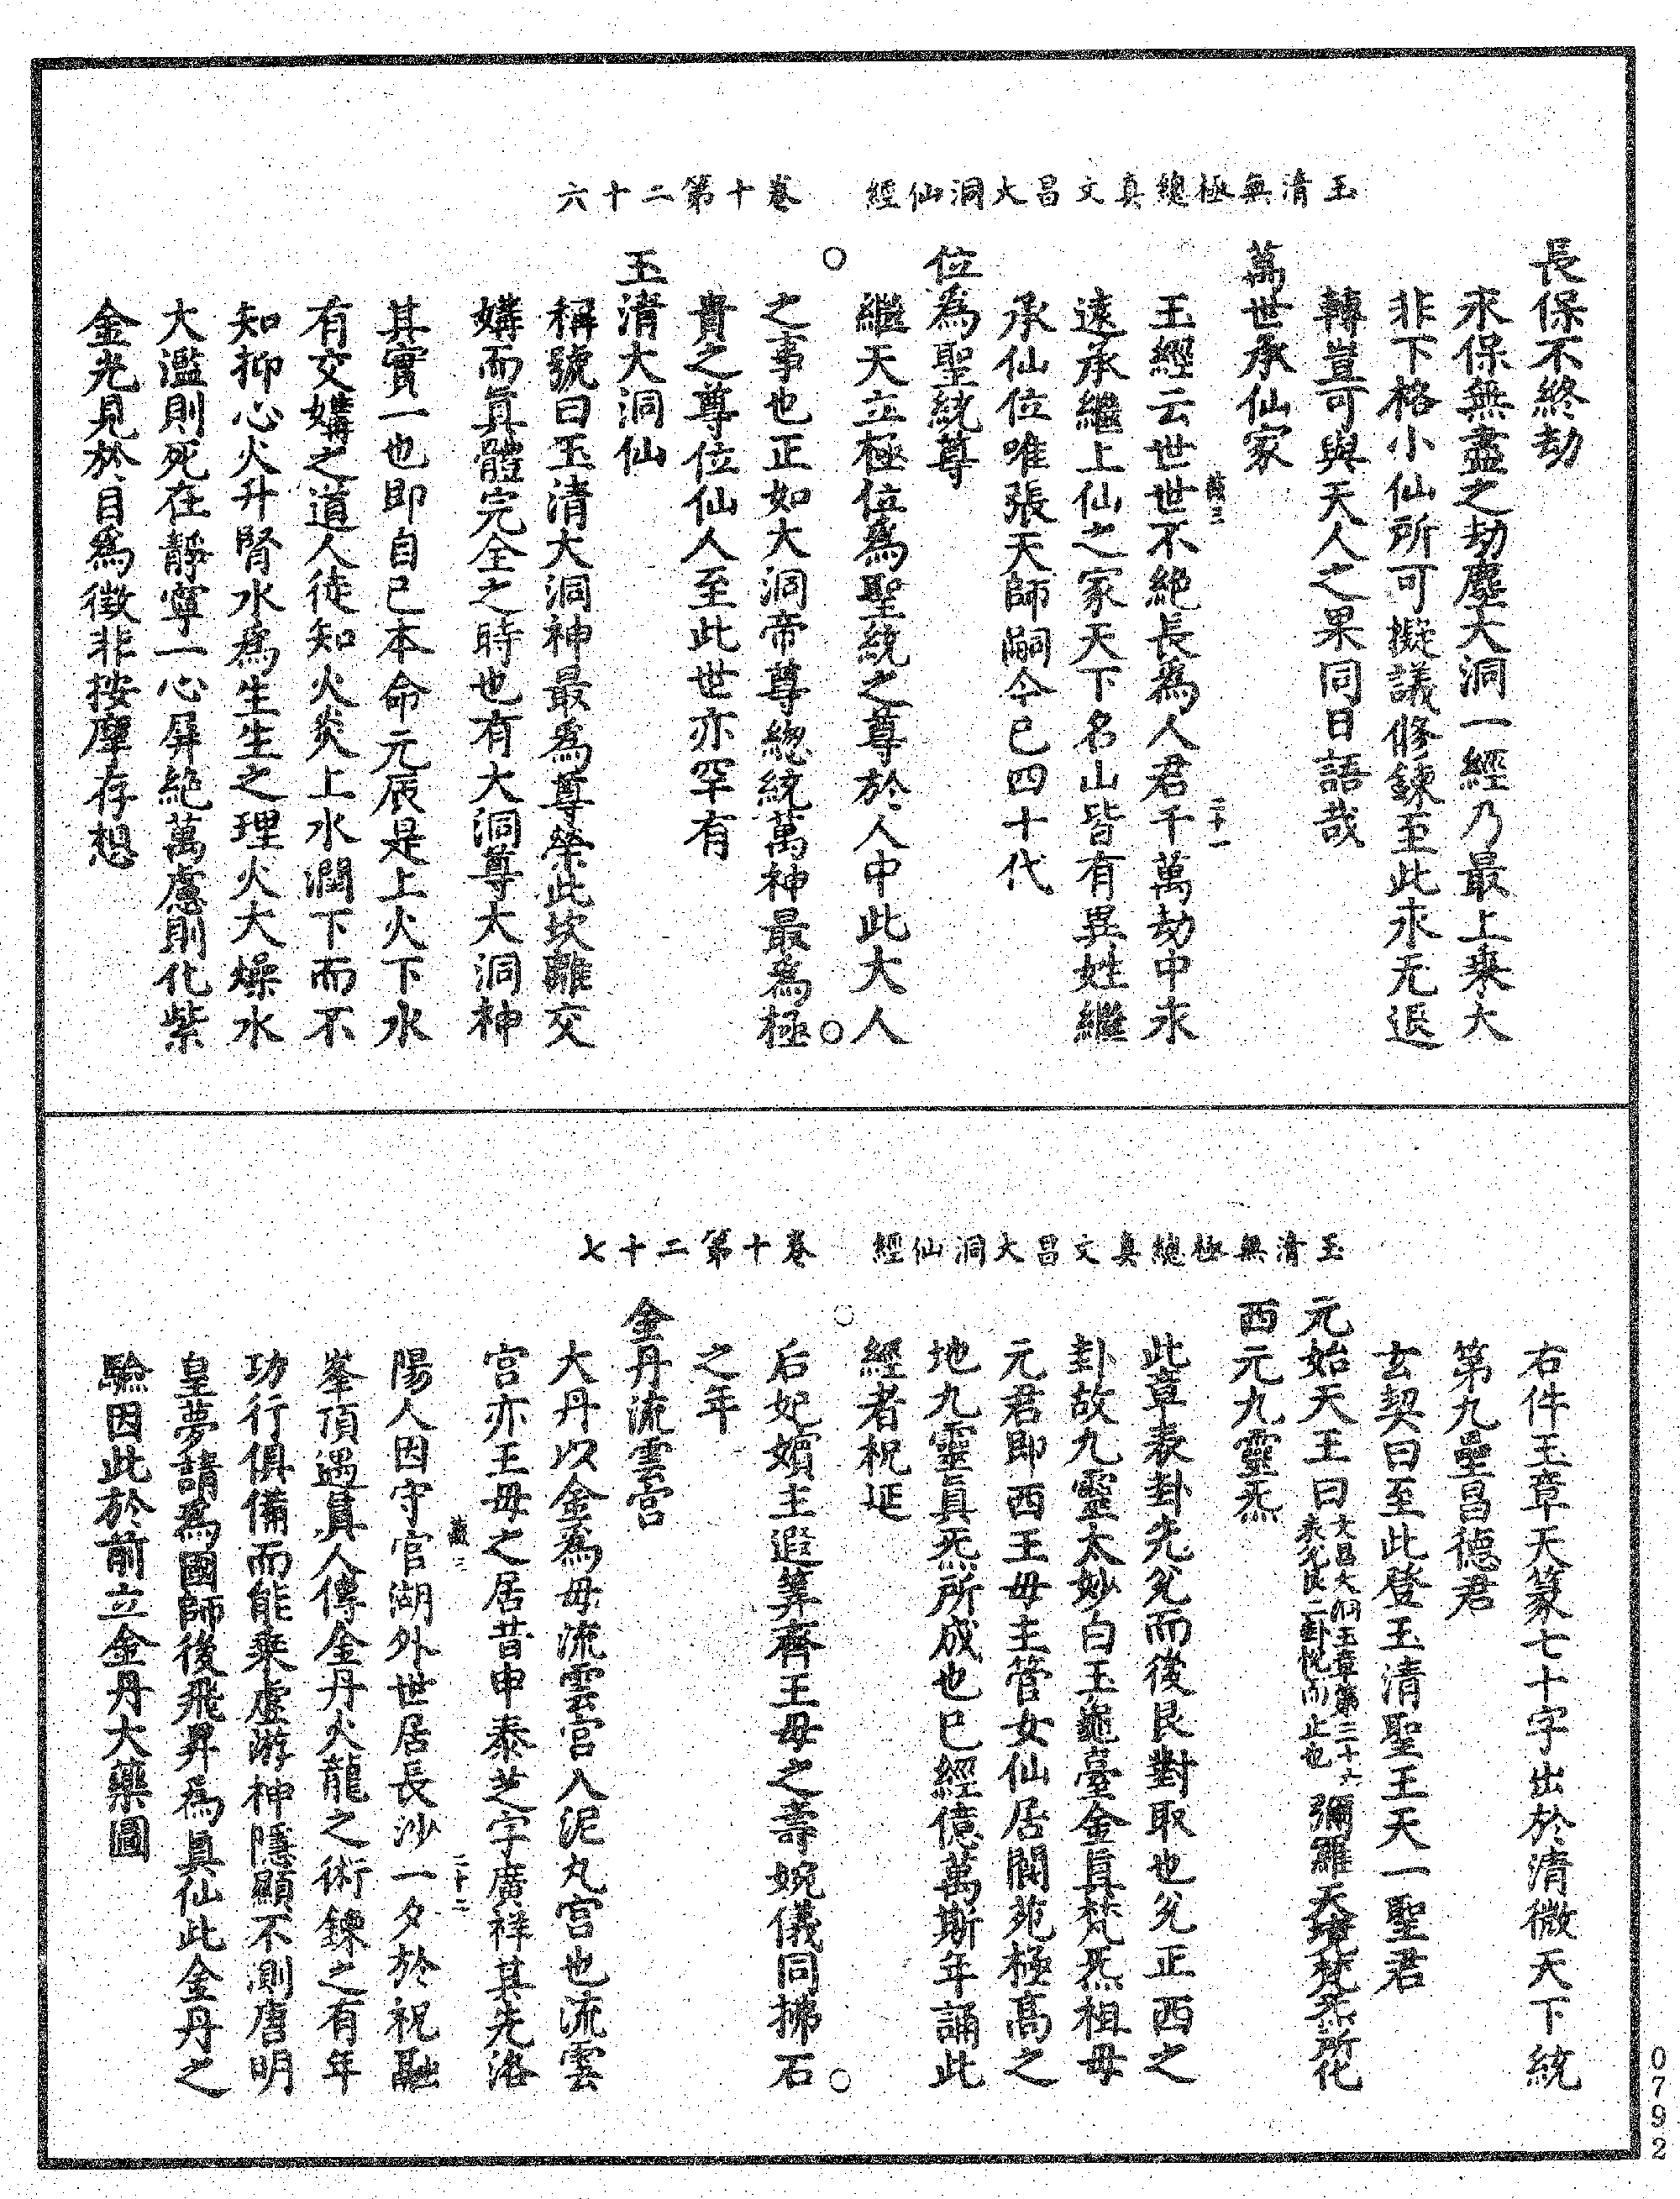 玉清無極總真文昌大洞仙經　卷十第二十六
長保不終劫
永保無盡之劫塵大洞一經乃最上乘大
非下格小仙所可擬議修鍊至此永无退
轉豈可與天人之果同日語哉
萬世承仙家
玉經云世世不絕長為人君千萬劫中永
遠承繼上仙之家天下名山皆有異姓繼
承仙位唯張天師嗣今已四十代
位為聖統尊
繼天立極位為聖統之尊於人中此大人
之事也正如大洞帝尊總統萬神最為極
貴之尊位仙人至此世亦罕有
玉清大洞仙
稱號曰玉清大洞神最為尊榮此坎離交
媾而真體完全之時也有大洞尊大洞神
其實一也即自己本命元辰是上火下水
有交媾之道人徒知火炎上水潤下而不
知抑心火升腎水為生生之理火大燥水
大濫則死在靜寧一心屏絕萬慮則化紫
金光見於目為徵非按摩存想
二十一
玉清無極總真文昌大洞仙經　卷十第二十七
右件玉章天篆七十字出於清微天下統
第九聖昌德君
玄契曰至此登玉清聖王天一聖君
元始天王曰大昌大洞玉章第三十六彌羅天緒梵炁所化
西元九靈炁
此章表卦先兌而後艮對取也兌正西之
卦故九靈太妙白玉龜臺金真梵炁祖母
元君即西王母主管女仙居閬苑極高之
地九靈真炁所成也已經億萬斯年誦此
經者祝延
后妃嬪主遐筭齊王母之壽婉儀同拂石
之年
金丹流雲宮
大丹以金為母流雲宮入泥丸宮也流雲
宮亦王母之居昔申泰芝字廣祥其先洛
陽人因守官湖外世居長沙一夕於祝融
峯頂遇真人傳金丹火龍之術鍊之有年
功行俱備而能乘虛游神隱顯不測唐明
皇夢請為國師後飛昇為真仙此金丹之
驗因此於前立金丹大藥圖
二十二
0792